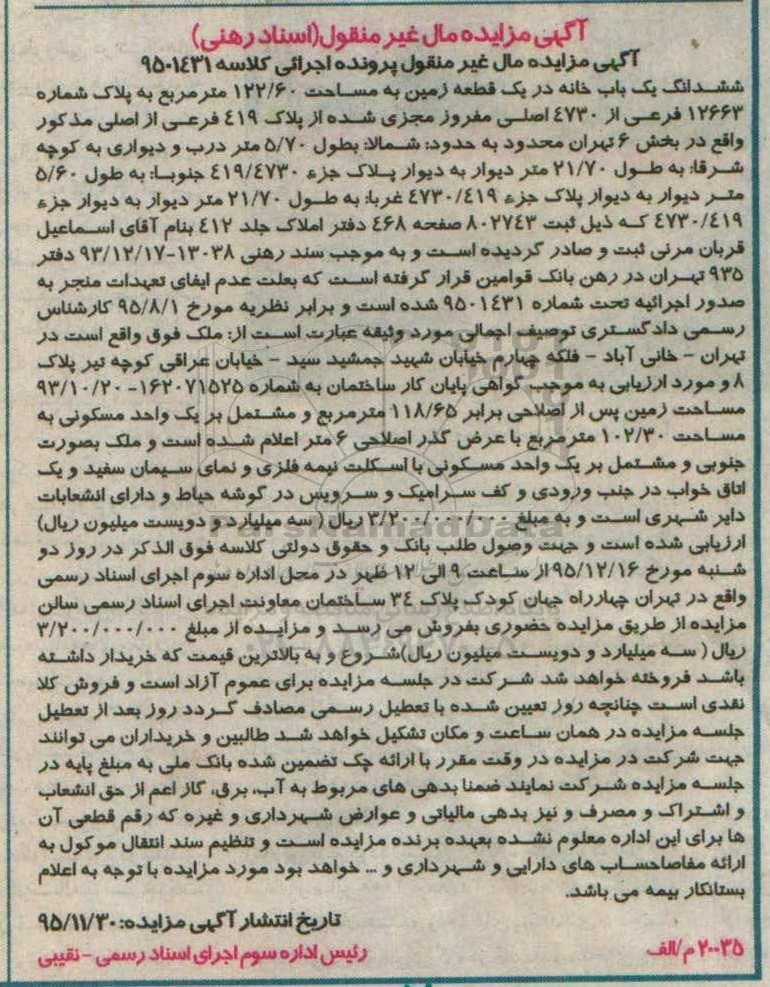 آگهی مزایده مال غیر منقول(اسناد رهنی)
آگهی مزایده مال غیر منقول پرونده اجرائی کلاسه ۹۵۰۱۴۳۱
ششدانگ یک باب خانه در یک قطعه زمین به مساحت ۱۲۲/۶۰ مترمربع به پلاک شماره
۱۲۶۶۳ فرعی از ۴۷۳۰ اصلی مفروز مجزی شده از پلاک ۴۱۹ فرعی از اصلی مذکور
واقع در بخش ۶ تهران محدود به حدود: شمالا: بطول ۵/۷۰ متر درب و دیواری به کوچه
شرقا: به طول ۲۱/۷۰ متر دیوار به دیوار پلاک جزء ۴۱۹/۴۷۳۰ جنوبا: به طول ۵/۶۰
متر دیوار به دیوار پلاک جزء ۴۷۳۰/۴۱۹ غربا: به طول ۲۱/۷۰ متر دیوار به دیوار جزء
۴۷۳۰/۴۱۹ که ذیل ثبت ۸۰۲۷۴۳ صفحه ۴۶۸ دفتر املاک جلد ۴۱۲ بنام آقای اسماعیل
قربان مرنی ثبت و صادر گردیده است و به موجب سند رهنی ۱۳۰۳۸-۹۳/۱۲/۱۷ دفتر
۹۳۵ تهران در رهن بانک قوامین قرار گرفته است که بعلت عدم ایفای تعهدات منجر به
صدور اجرائیه تحت شماره ۹۵۰۱۴۳۱ شده است و برابر نظریه مورخ ۹۵/۸/۱ کارشناس
رسمی دادگستری توصیف اجمالی مورد وثیقه عبارت است از: ملک فوق واقع است در
تهران - خانی آباد - فلکه چهارم خیابان شهید جمشید سید - خیابان عراقی کوچه تیر پلاک
۸ و مورد ارزیابی به موجب گواهی پایان کار ساختمان به شماره ۱۶۲۰۷۱۵۲۵- ۹۳/۱۰/۲۰
مساحت زمین پس از اصلاحی برابر ۱۱۸/۶۵ مترمربع و مشتمل بر یک واحد مسکونی به
مساحت ۱۰۲/۳۰ مترمربع با عرض گذر اصلاحی ۶ متر اعلام شده است و ملک بصورت
جنوبی و مشتمل بر یک واحد مسکونی با اسکلت نیمه فلزی و نمای سیمان سفید و یک
اتاق خواب در جنب ورودی و کف سرامیک و سرویس در گوشه حیاط و دارای انشعابات
دایر شهری است و به مبلغ ۳/۲۰۰/۰۰۰/۰۰۰ ریال ( سه میلیارد و دویست میلیون ریال)
ارزیابی شده است و جهت وصول طلب بانک و حقوق دولتی کلاسه فوق الذکر در روز دو
شنبه مورخ ۹۵/۱۲/۱۶ از ساعت ۹ الی ۱۲ ظهر در محل اداره سوم اجرای اسناد رسمی
واقع در تهران چهارراه جهان کودک پلاک ۳۴ ساختمان معاونت اجرای اسناد رسمی سالن
مزایده از طریق مزایده حضوری بفروش می رسد و مزایده از مبلغ ۳/۲۰۰/۰۰۰/۰۰۰
ریال ( سه میلیارد و دویست میلیون ریال)شروع و به بالاترین قیمت که خریدار داشته
باشد فروخته خواهد شد شرکت در جلسه مزایده برای عموم آزاد است و فروش کلا
نقدی است چنانچه روز تعیین شده با تعطیل رسمی مصادف گردد روز بعد از تعطیل
جلسه مزایده در همان ساعت و مکان تشکیل خواهد شد طالبین و خریداران می توانند
جهت شرکت در مزایده در وقت مقرر با ارائه چک تضمین شده بانک ملی به مبلغ پایه در
جلسه مزایده شرکت نمایند ضمنا بدهی های مربوط به آب، برق، گاز اعم از حق انشعاب
و اشتراک و مصرف و نیز بدهی مالیاتی و عوارض شهرداری و غیره که رقم قطعی آن
ها برای این اداره معلوم نشده بعهده برنده مزایده است و تنظیم سند انتقال موکول به
ارائه مفاصاحساب های دارایی و شهرداری و ... خواهد بود مورد مزایده با توجه به اعلام
بستانکار بیمه می باشد.
تاریخ انتشار آگهی مزایده: ۹۵/۱۱/۳۰
۲۰۰۳۵ م/الف
رئیس اداره سوم اجرای اسناد رسمی - نقیبی